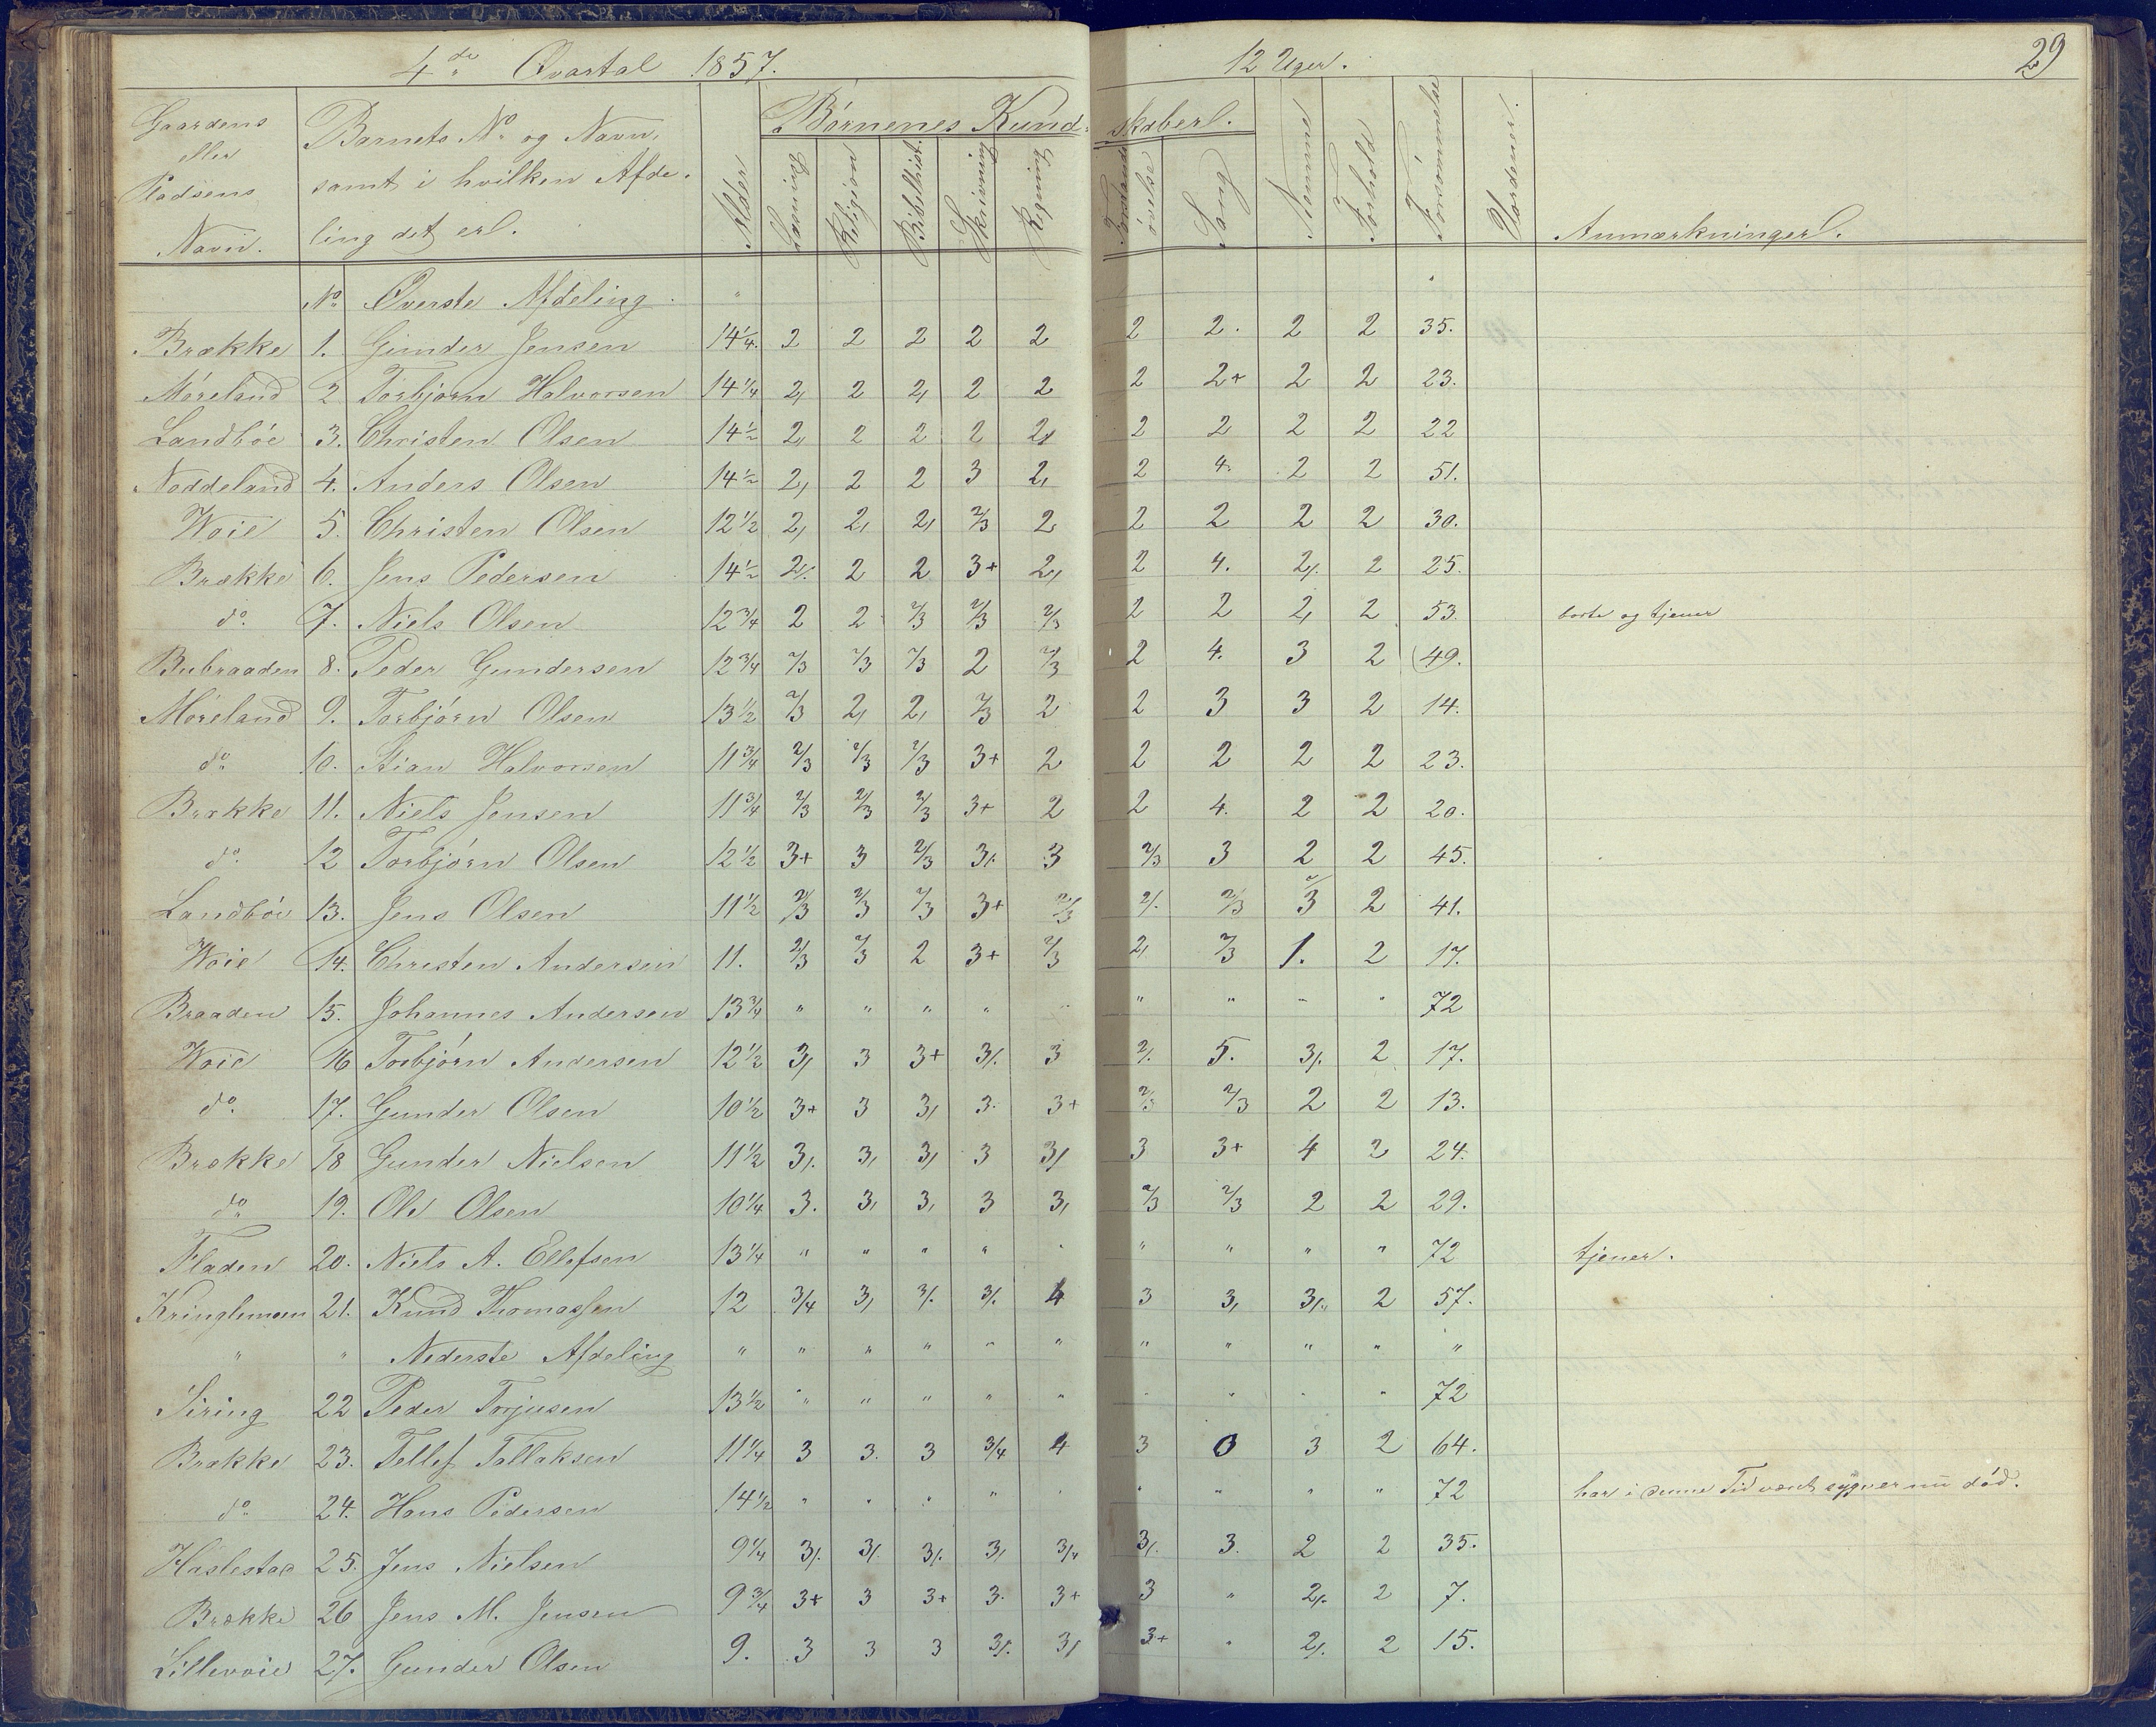 4de Qvartal 1857. 12 Uger. 29
Gaardens eller Pladsens Navn.
Barnets No og Navn, samt i hvilken Afdeling det er.
Alder
Børnenes Kundskaber.
Læsning
Religion
Bibelhist.
Skrivning
Regning
Forstandsøvelse
Sang
Nemme
Forhold
Forsømmelse
Vardener.
Anmærkninger.
No Øverste Afdeling. "
Brække 1. Gunder Jensen 14 1/4. 2 2 2 2 2 2 2. 2 2 35.
Møreland 2 Torbjørn Halvorsen 14 1/4 2, 2 2, 2 2 2 2+ 2 2 23.
Landbøe 3. Christen Olsen 14 1/2 2, 2 2 2 2, 2 2 2 2 22
Noddeland 4. Anders Olsen 14 1/2 2, 2 2 3 2, 2 4. 2 2 51.
Woie 5. Christen Olsen 12 1/2 2, 2, 2, 2/3 2 2 2 2 2 30.
Brække 6. Jens Pedersen 14 1/2 2/. 2 2 3+ 2, 2 4. 2/. 2 25.
do. 7. Niels Olsen 12 3/4 2 2 2/3 2/3 2/3 2 2 2, 2 53. borte og tjener
Bubraaden 8. Peder Gundersen 12 3/4 2/3 2/3 2/3 2 2/3 2 4. 3 2 49.
Møreland 9. Torbjørn Olsen 13 1/2 2/3 2, 2, 2/3 2 2 3 3 2 14.
do. 10. Stian Halvorsen 11 3/4 2/3 2/3 2/3 3+ 2 2 2 2 2 23.
Brække 11. Niels Jensen 11 3/4 2/3 2/3 2/3 3+ 2 2 4. 2 2 20.
do. 12 Torbjørn Olsen 12 1/2 3+ 3 2/3 3/. 3 2/3 3 2 2 45.
Landbøe 13. Jens Olsen 11 1/2 2/3 2/3 2/3 3+ 2/3 2/. 2/3 2/3 2 41.
Woie 14. Christen Andersen 11. 2/3 2/3 2 3+ 2/3 2, 2/3 1. 2 17.
Braaden 15. Johannes Andersen 13 3/4 " " " " " " " " " 72
Woie 16 Torbjørn Andersen 12 1/2 3, 3 3+ 3/. 3 2/. 5. 3/. 2 17.
do. 17. Gunder Olsen 10 1/2 3+ 3 3, 3. 3+ 2/3 2/3 2 2 13.
Brække 18 Gunder Nielsen 11 1/2 3/. 3, 3, 3 3, 3 3+ 4 2 24.
do. 19. Ole Olsen 10 1/4 3. 3, 3, 3 3, 2/3 2/3 2 2 29.
Fladen 20. Niels A. Ellefsen 13 1/4 " " " " " " " " " 72 tjener.
Kringlemoen 21. Knud Thomassen 12 3/4 3, 3/. 3/. 4 3 3, 3/. 2 57.
" " Nederste Afdeling " " " " " " " " " " "
Siring 22 Peder Torjusen 13 1/2 " " " " " " " " " 72
Brække 23. Tellef Tallaksen 11 1/4 3 3. 3 3/4 4 3 0 3 2 64.
do 24. Hans Pedersen 14 1/2 " " " " " " " " " 72 har i denne Tid vært syg er nu død.
Haslestad 25. Jens Nielsen 9 1/4 3/. 3/. 3/. 3, 3/4 3/. 3. 2 2 35.
Brække 26 Jens M. Jensen 9 3/4 3+ 3 3+ 3. 3+ 3 " 2/. 2 7.
Lillevoie 27. Gunder Olsen 9. 3 3 3 3/. 3, 3+ " 2/. 2 15.